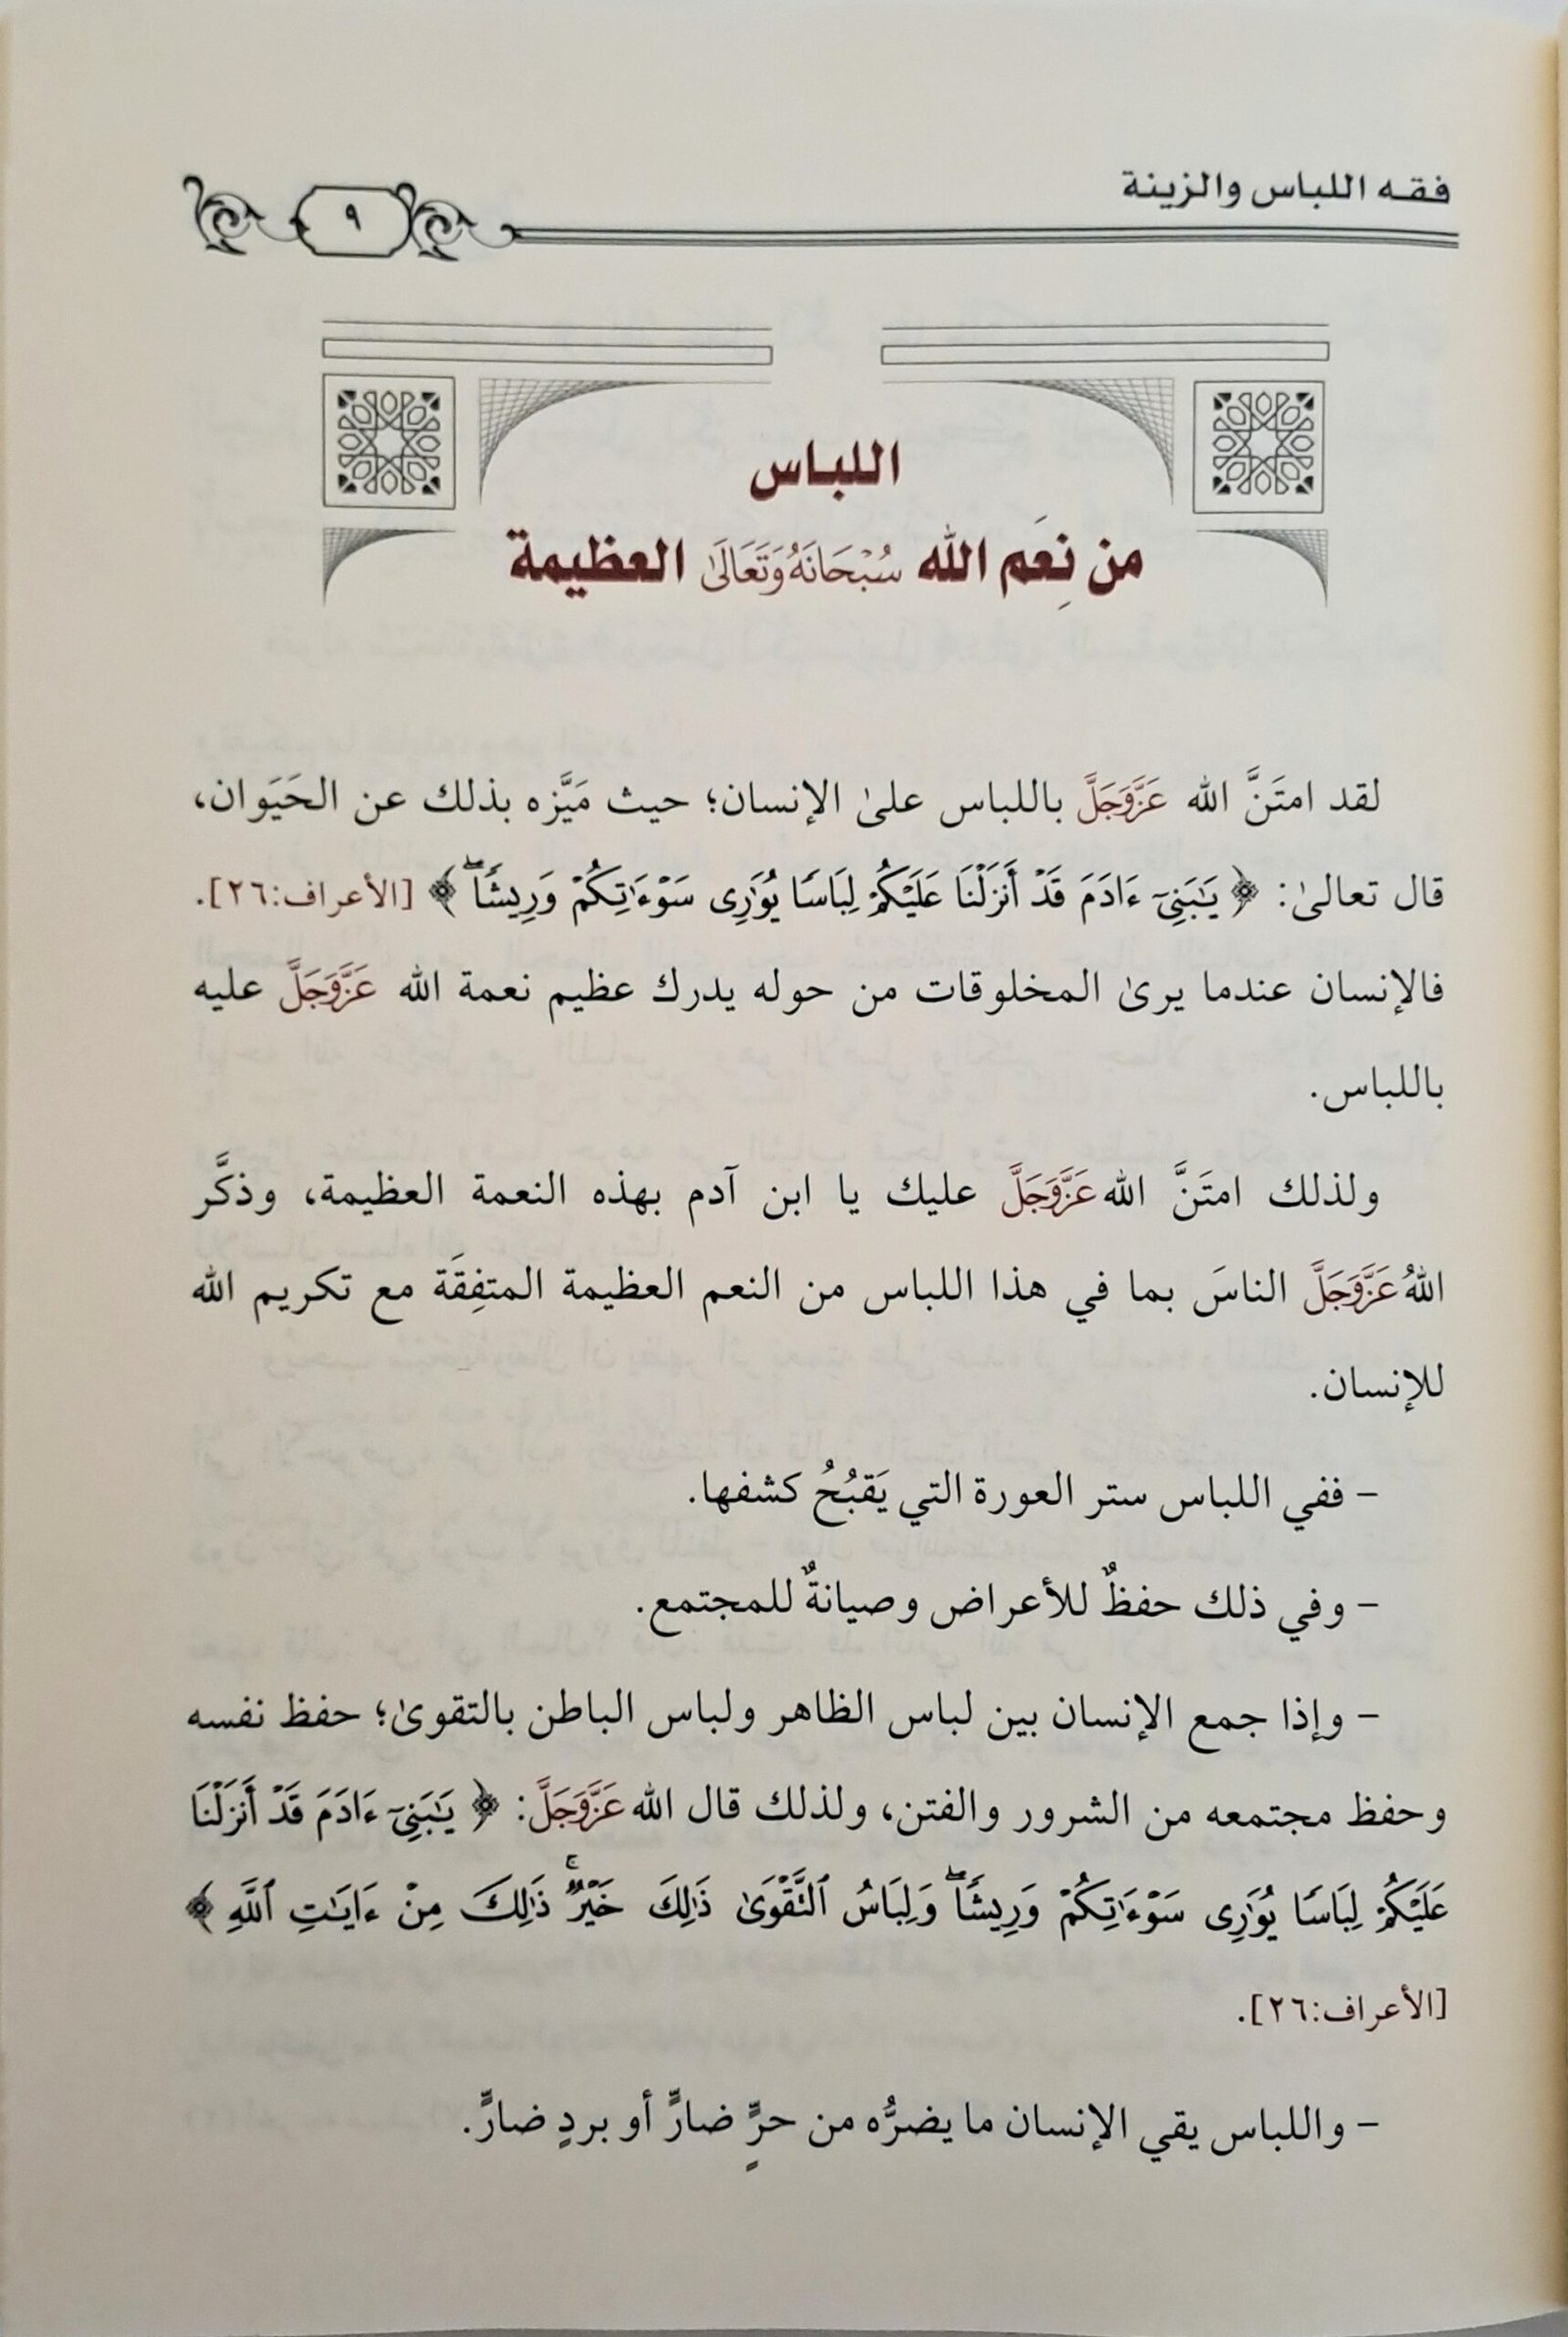 فقه اللباس والزينة
٩
اللباس
من نِعَم الله سُبْحَانَهُ وَتَعَالَىٰ العظيمة
لقد امتَنَّ الله عَزَّوَجَلَّ باللباس علىٰ الإنسان؛ حيث مَيَّزه بذلك عن الحَيَوان،
قال تعالىٰ: ﴿ يَٰبَنِىٓ ءَادَمَ قَدْ أَنزَلْنَا عَلَيْكُمْ لِبَاسًا يُوَٰرِى سَوْءَٰتِكُمْ وَرِيشًاۖ ﴾ [الأعراف:٢٦].
فالإنسان عندما يرىٰ المخلوقات من حوله يدرك عظيم نعمة الله عَزَّوَجَلَّ عليه
باللباس.
ولذلك امتَنَّ الله عَزَّوَجَلَّ عليك يا ابن آدم بهذه النعمة العظيمة، وذكَّر
اللهُ عَزَّوَجَلَّ الناسَ بما في هذا اللباس من النعم العظيمة المتفِقَة مع تكريم الله
للإنسان.
- ففي اللباس ستر العورة التي يَقبُحُ كشفها.
- وفي ذلك حفظٌ للأعراض وصيانةٌ للمجتمع.
- وإذا جمع الإنسان بين لباس الظاهر ولباس الباطن بالتقوىٰ؛ حفظ نفسه
وحفظ مجتمعه من الشرور والفتن، ولذلك قال الله عَزَّوَجَلَّ: ﴿ يَٰبَنِىٓ ءَادَمَ قَدْ أَنزَلْنَا
عَلَيْكُمْ لِبَاسًا يُوَٰرِى سَوْءَٰتِكُمْ وَرِيشًاۖ وَلِبَاسُ ٱلتَّقْوَىٰ ذَٰلِكَ خَيْرٌۚ ذَٰلِكَ مِنْ ءَايَٰتِ ٱللَّهِ ﴾
[الأعراف:٢٦].
- واللباس يقي الإنسان ما يضرُّه من حرٍّ ضارٍّ أو بردٍ ضارٍّ.